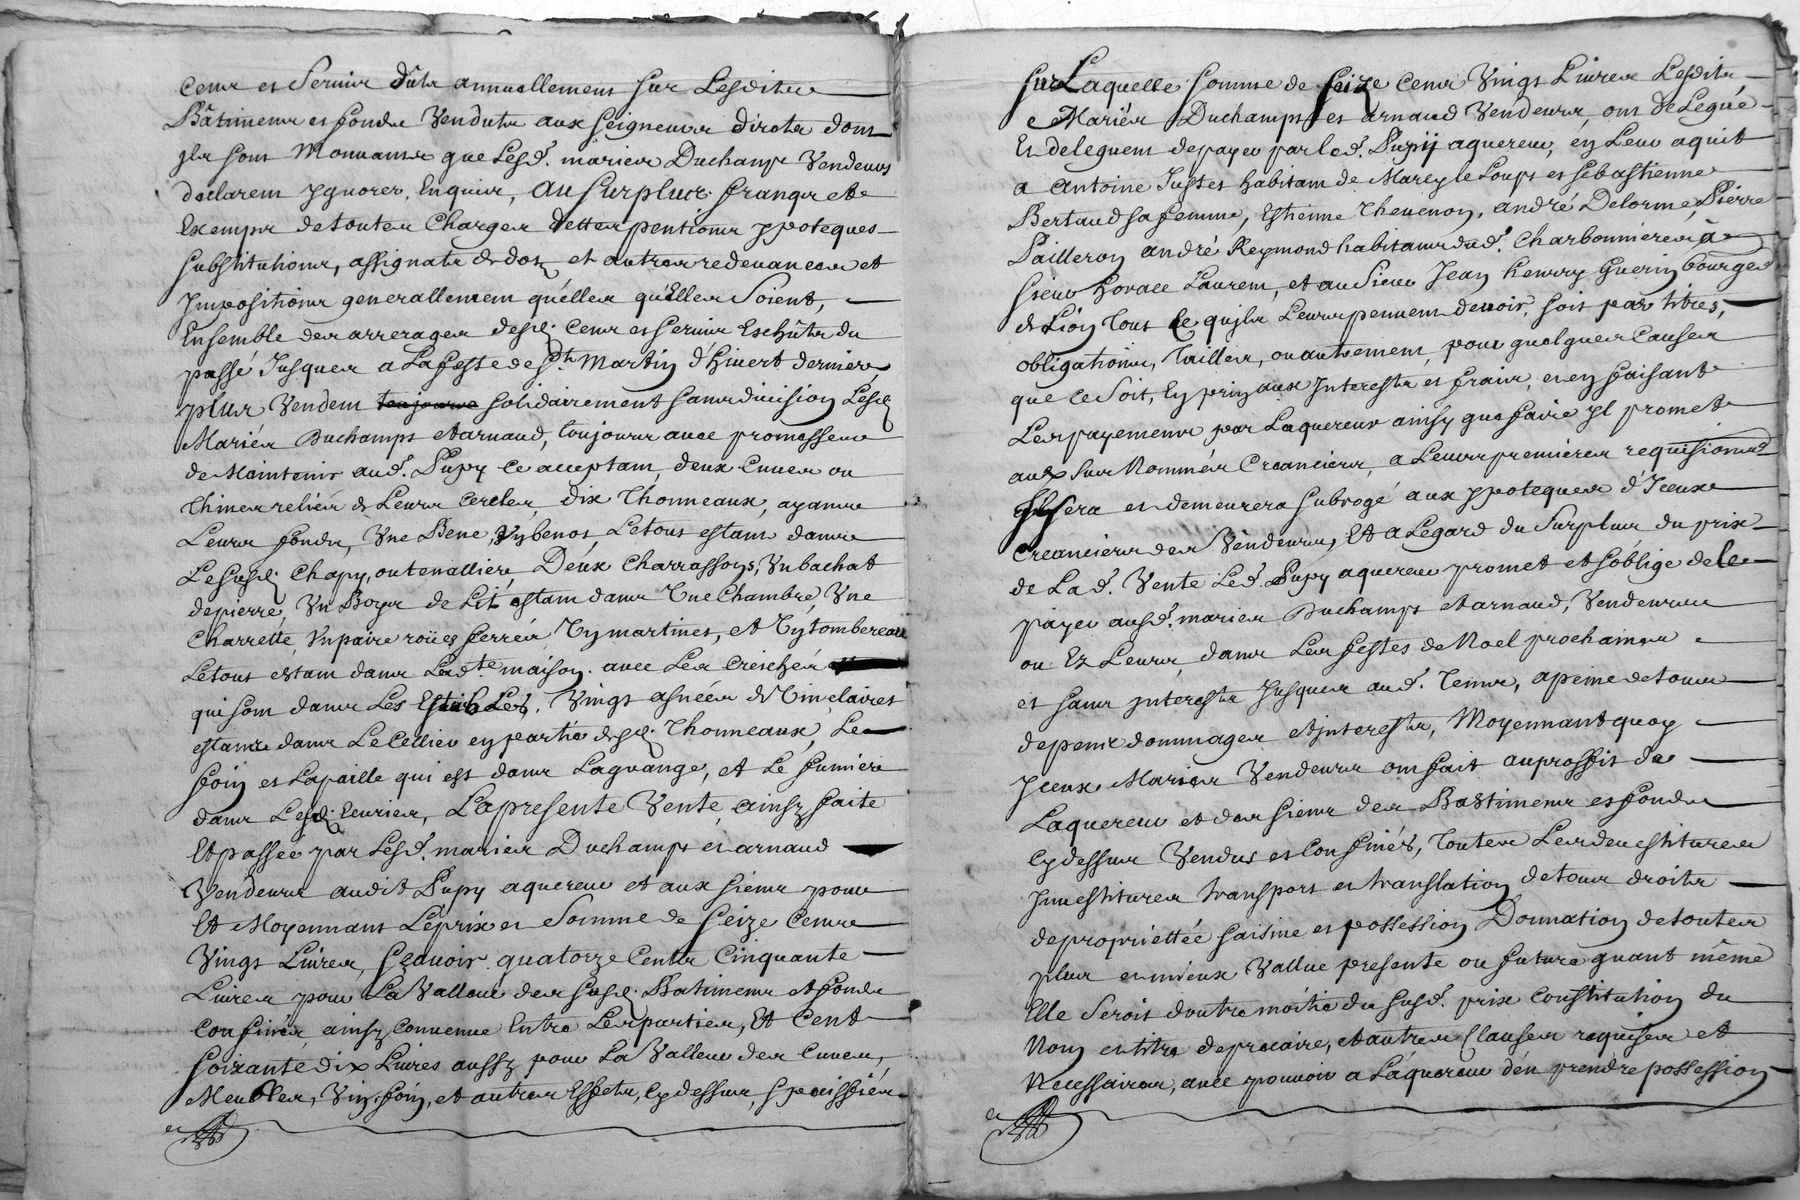 cens et servis dûts annuellement sur Lesdits
Bâtiments et fonds Venduts aux seigneurs directs dont
jls sont Mouvants que Lesd. mariés Duchamp Vendeurs
déclarent ygnorer, Enquis, au surplus franqs et
Exempts de toutes Charges dettes pentions ypoteques
substitutions, assignats de dot, et autres redevances et
Impositions generallement quélles qu'Elles Soient,
Ensemble des arrerages desd. cens et servis Eschûts du
passé Jusques a La feste de St. Martin d'hivert dernier,
plus Vendent toujours solidairement sans division Lesd.
Mariés Duchamps et arnaud, toujours avec promesse
de Maintenir aud. Pupy ce acceptant, deux Cuves ou
thines reliés de Leurs Cercles, dix thonneaux, ayants
Leurs fonds, Une Bene, Un benot, Le tout estant dans
Le susd. Chapy, ou tenalliere, Deux Charrassons, Un bachat
de pierre, Un Boyr de Lit estant dans Une Chambre, Une
Charrette, Un paire roües ferrées Ty martines, et Ty tombereau
Le tout estant dans Lad.te maison. avec Les Creschés
qui sont dans Les Estables. Vingt asnées de Vin clairet
estants dans Le Cellier en partie desd. Thonneaux, Le
foin et La paille qui est dans Lagrange, et Le fumier
dans Lesd. Ecuries, La presente Vente ainsy faite
Et passée par Lesd. mariés Duchamps et arnaud
Vendeurs audit Pupy aquereur et aux siens pour
Et Moyennant Le prix et Somme de Seize Cents
Vingt Livres, Sçavoir quatorze Cents Cinquante
Livres pour La Valleur des susd. Batiments et fonds
Confinés ainsy Convenue Entre Les parties, Et Cent
soixante dix Livres aussy pour La Valleur des Cuves,
Meubles, Vin, foin, et autres Effets, Cy dessus, speciffiés.
sur Laquelle somme de seize Cent Vingt Livres Lesdits
Mariés Duchamps et arnaud Vendeurs, ont deLegué
Et deleguent de payer par led. Pupy aquereur, en Leur aquit
a Antoine Justet habitant de Marcy le Loup et sebastienne
Bertaud sa femme, Estienne Thevenon, andré Delorme, Pierre
Pailleron andré Reymond habitants dud. Charbonnieres, à
sieur horace Laurent, et au Sieur Jean henry Guerin bourgeois
de Lion, tout Ce qu'jls Leurs peuvent devoir, soit par titres,
obligations, tailles, ou autrement pour quelques Causes
que Ce Soit, Cy pris aux Interests et frais, et en faisant
Les payements par Laquereur ainsy que faire jl promet
aux sus Nommés Creanciers, a Leurs premieres requisitions
Jl sera et demeurera subrogé aux ypoteques d'Jceux
Creanciers des Vendeurs, Et a Legard du Surplus du prix
de La d. Vente Led. Pupy aquereur promet et s'oblige de le
payer ausd. mariés Duchamps et arnaud, Vendeurs
ou Ez Leurs, dans Les festes de Noel prochaines
et sans jnterests Jusques aud. temps, a peine de tous
depens dommages et jnterests, Moyennant quoy
Jceux Mariés Vendeurs ont fait au proffit de
Laquereur et des siens des Bastiments et fonds
Cy dessus Vendus et Confinés, Toutes Les devestitures
Jnvestitures transport et translation de tous droits
de propriettée saisine et possession Donnation de toutes
plus et mieux Vallue presente ou future quant même
Elle Seroit doutre moitié du susd. prix Constitution du
Nom et titre de precaire, et autres Clauses requises et
Necessaires, avec pouvoir a Láquereur dén prendre possession